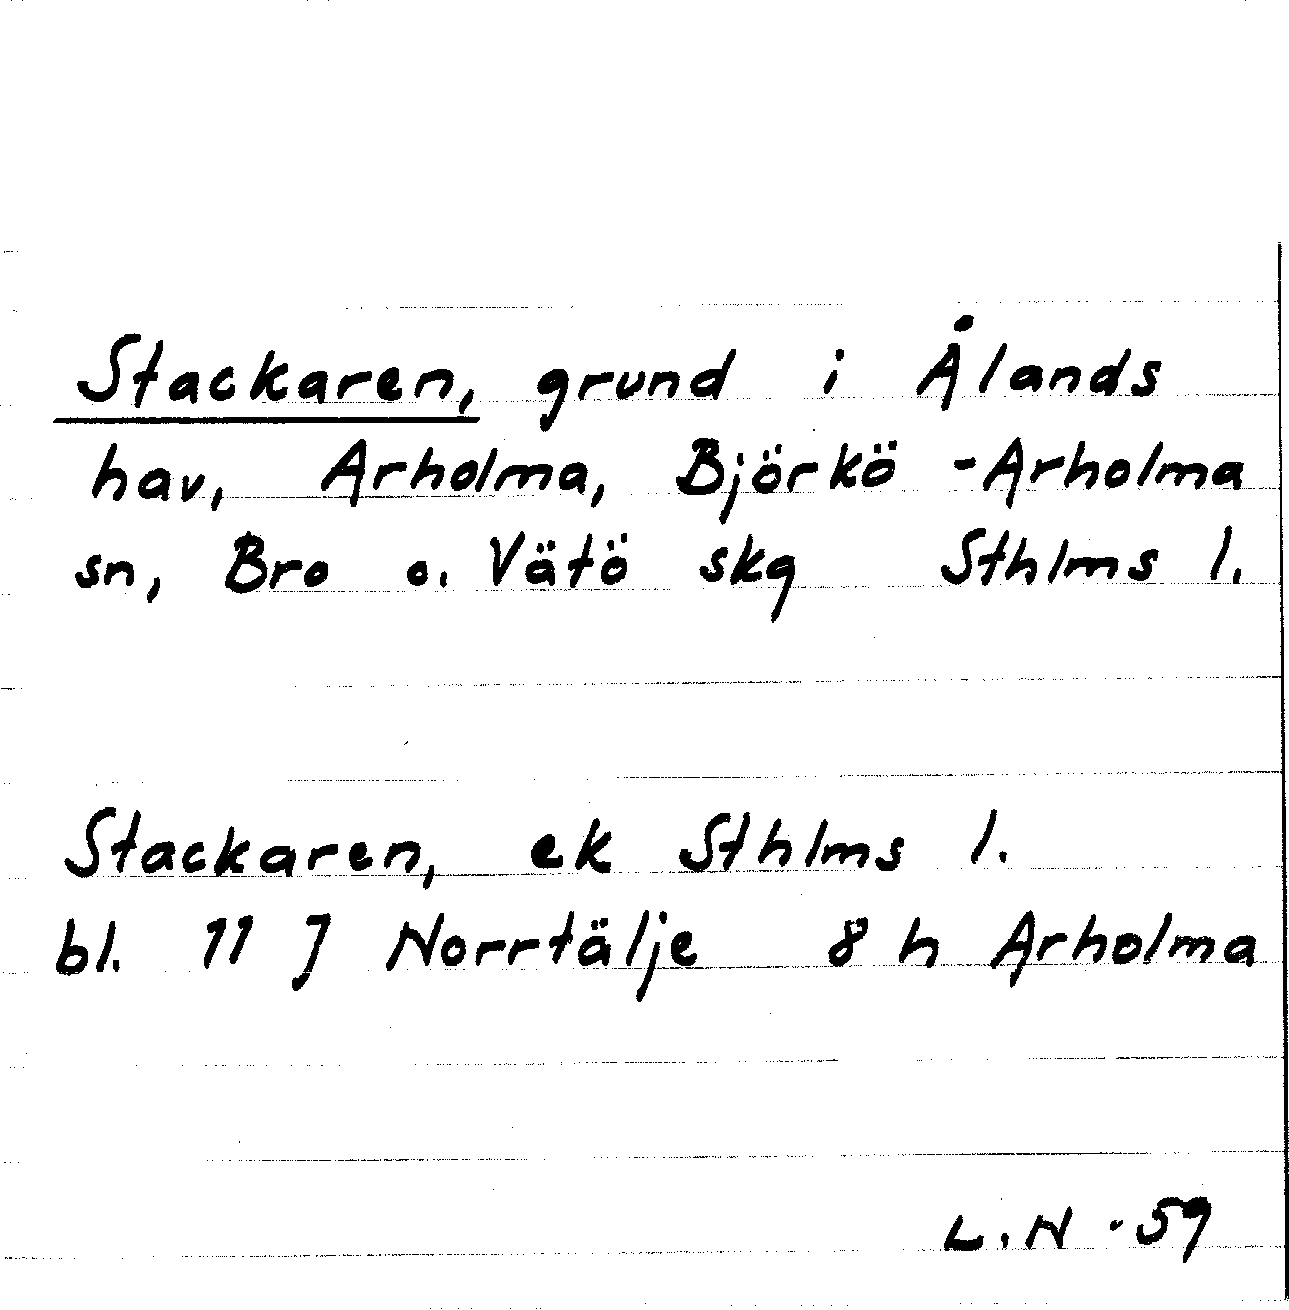 Stackaren, grund i Ålands
hav, Arholma, Björkö-Arholma
sn, Bro o. Vätö skg Sthlms l.
Stackaren, ek Sthlms l.
bl. 11 J Norrtälje 8 h Arholma
L.N -59